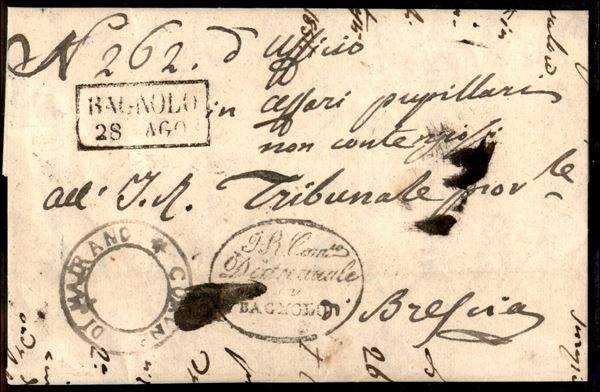 N 262. d'Ufficio
BAGNOLO
28 AGO
in affari pupillari
non contenziosi
All' I. R. Tribunale prov.le
di Brescia
COMUNE DI MAIRANO
I. R. Com.to
Distrettuale
in
BAGNOLO
26